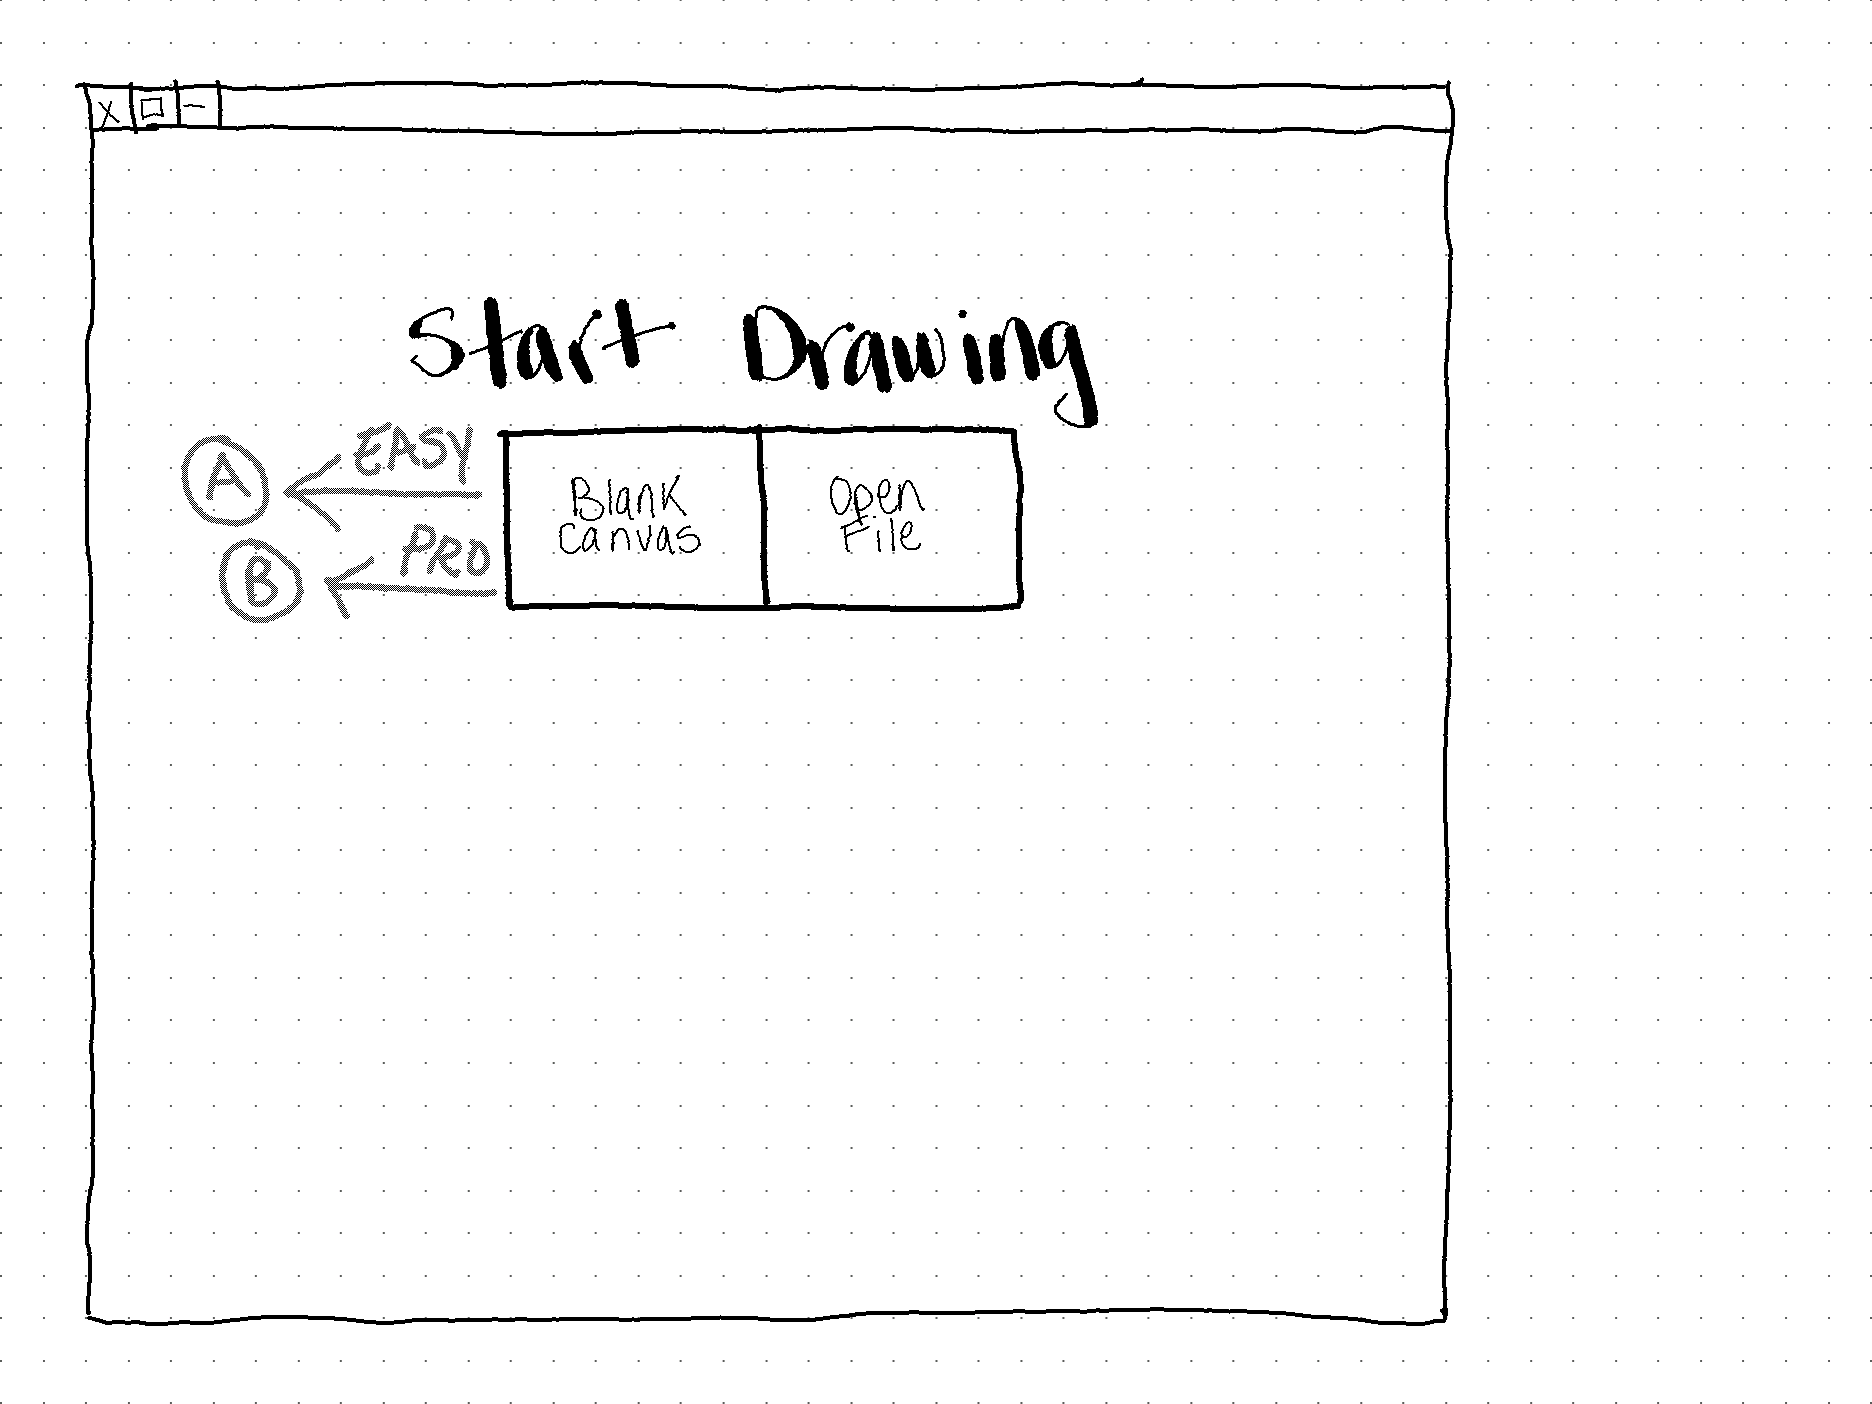 X
Start Drawing
A EASY
B PRO
Blank
Canvas
Open
File